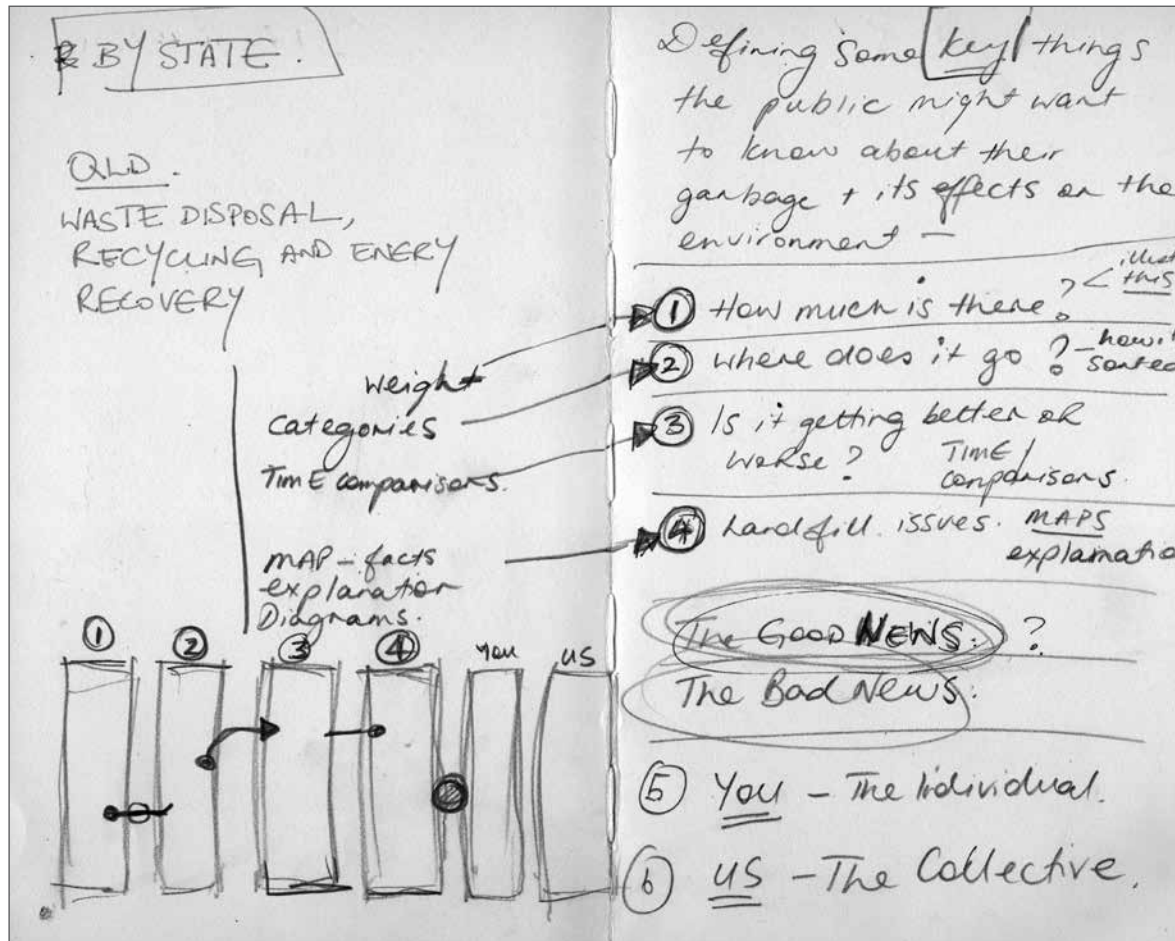 BY STATE.
QLD.
WASTE DISPOSAL,
RECYCLING AND ENERY
RECOVERY
weight
categories
TIME comparisons.
MAP - facts
explanation
Diagrams.
1 2 3 4 You US
Defining some key things
the public might want
to know about their
garbage + its effects on the
environment —
1 How much is there? < illust
this
2 where does it go? - how i
sorted
3 Is it getting better or
worse? TIME /
comparisons.
4 Landfill issues. MAPS
explanatio
The GOOD NEWS. ?
The Bad News.
5 You - The Individual.
6 US - The Collective.